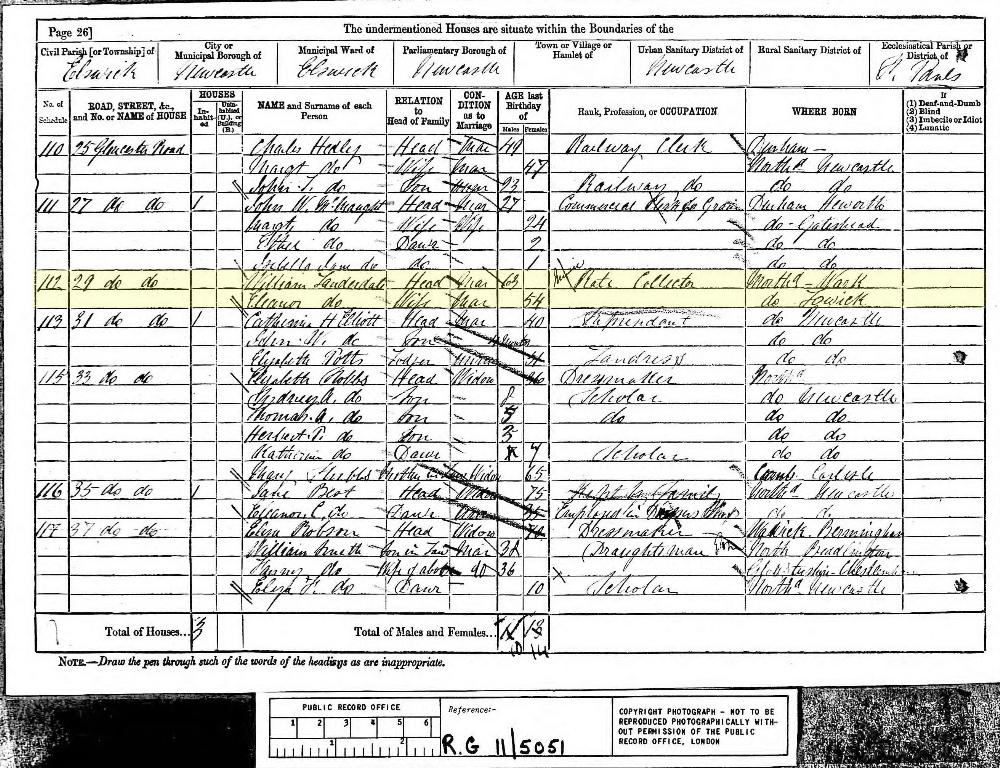 Page 26]
The undermentioned Houses are situate within the Boundaries of the
Civil Parish [or Township] of
City or Municipal Borough of
Municipal Ward of
Parliamentary Borough of
Town or Village or Hamlet of
Urban Sanitary District of
Rural Sanitary District of
Ecclesiastical Parish or District of
Elswick Newcastle Elswick Newcastle Newcastle St. Pauls
No. of Schedule
ROAD, STREET, &c., and No. or NAME of HOUSE
HOUSES
Inhabited
Uninhabited (U.), or Building (B.)
NAME and Surname of each Person
RELATION to Head of Family
CONDITION as to Marriage
AGE last Birthday of
Males Females
Rank, Profession, or OCCUPATION
WHERE BORN
If
(1) Deaf-and-Dumb
(2) Blind
(3) Imbecile or Idiot
(4) Lunatic
110 25 Gloucester Road Charles Hedley Head Mar 49 Railway Clerk Durham
Margt do Wife Mar 47 Northd Newcastle
John T. do Son 23 Railway do do do
111 27 do do 1 John W. Head Mar 27 Commercial Durham Heworth
Margt do Wife 24 do Gateshead
do Daur 2 do do
Isabella Jane do do 1 do do
112 29 do do William Lauderdale Head Mar 63 Rate Collector Northd Wark
Eleanor do Wife Mar 54 do Lowick
113 31 do do 1 Catherine H Elliott Head Mar 40 do Newcastle
John W. do Son do do
Elizabeth Potts Widow Laundress do do
115 33 do do Elizabeth Head Widow 36 Dressmaker Northd
Sydney A. do Son 8 Scholar do Newcastle
Thomas A. do Son 5 do do do
Herbert P. do Son 3 do do
Katherine do Daur 7 Scholar do do
Mother in Law Widow 65 Cumb Carlisle
116 35 do do 1 Jane Best Head Widow 75 Northd Newcastle
Eleanor C. do Daur Employed in do do
117 37 do do Eliza Robson Head Widow 70 Dressmaker
William Son in Law Mar Draughtsman
Fanny do Wife of above do 36
Eliza F. do Daur 10 Scholar Northd Newcastle
Total of Houses... 3
Total of Males and Females...
10 14
NOTE.—Draw the pen through such of the words of the headings as are inappropriate.
PUBLIC RECORD OFFICE
1 2 3 4 5 6
1 2
Reference:-
R.G 11/5051
COPYRIGHT PHOTOGRAPH - NOT TO BE
REPRODUCED PHOTOGRAPHICALLY WITH-
OUT PERMISSION OF THE PUBLIC
RECORD OFFICE, LONDON